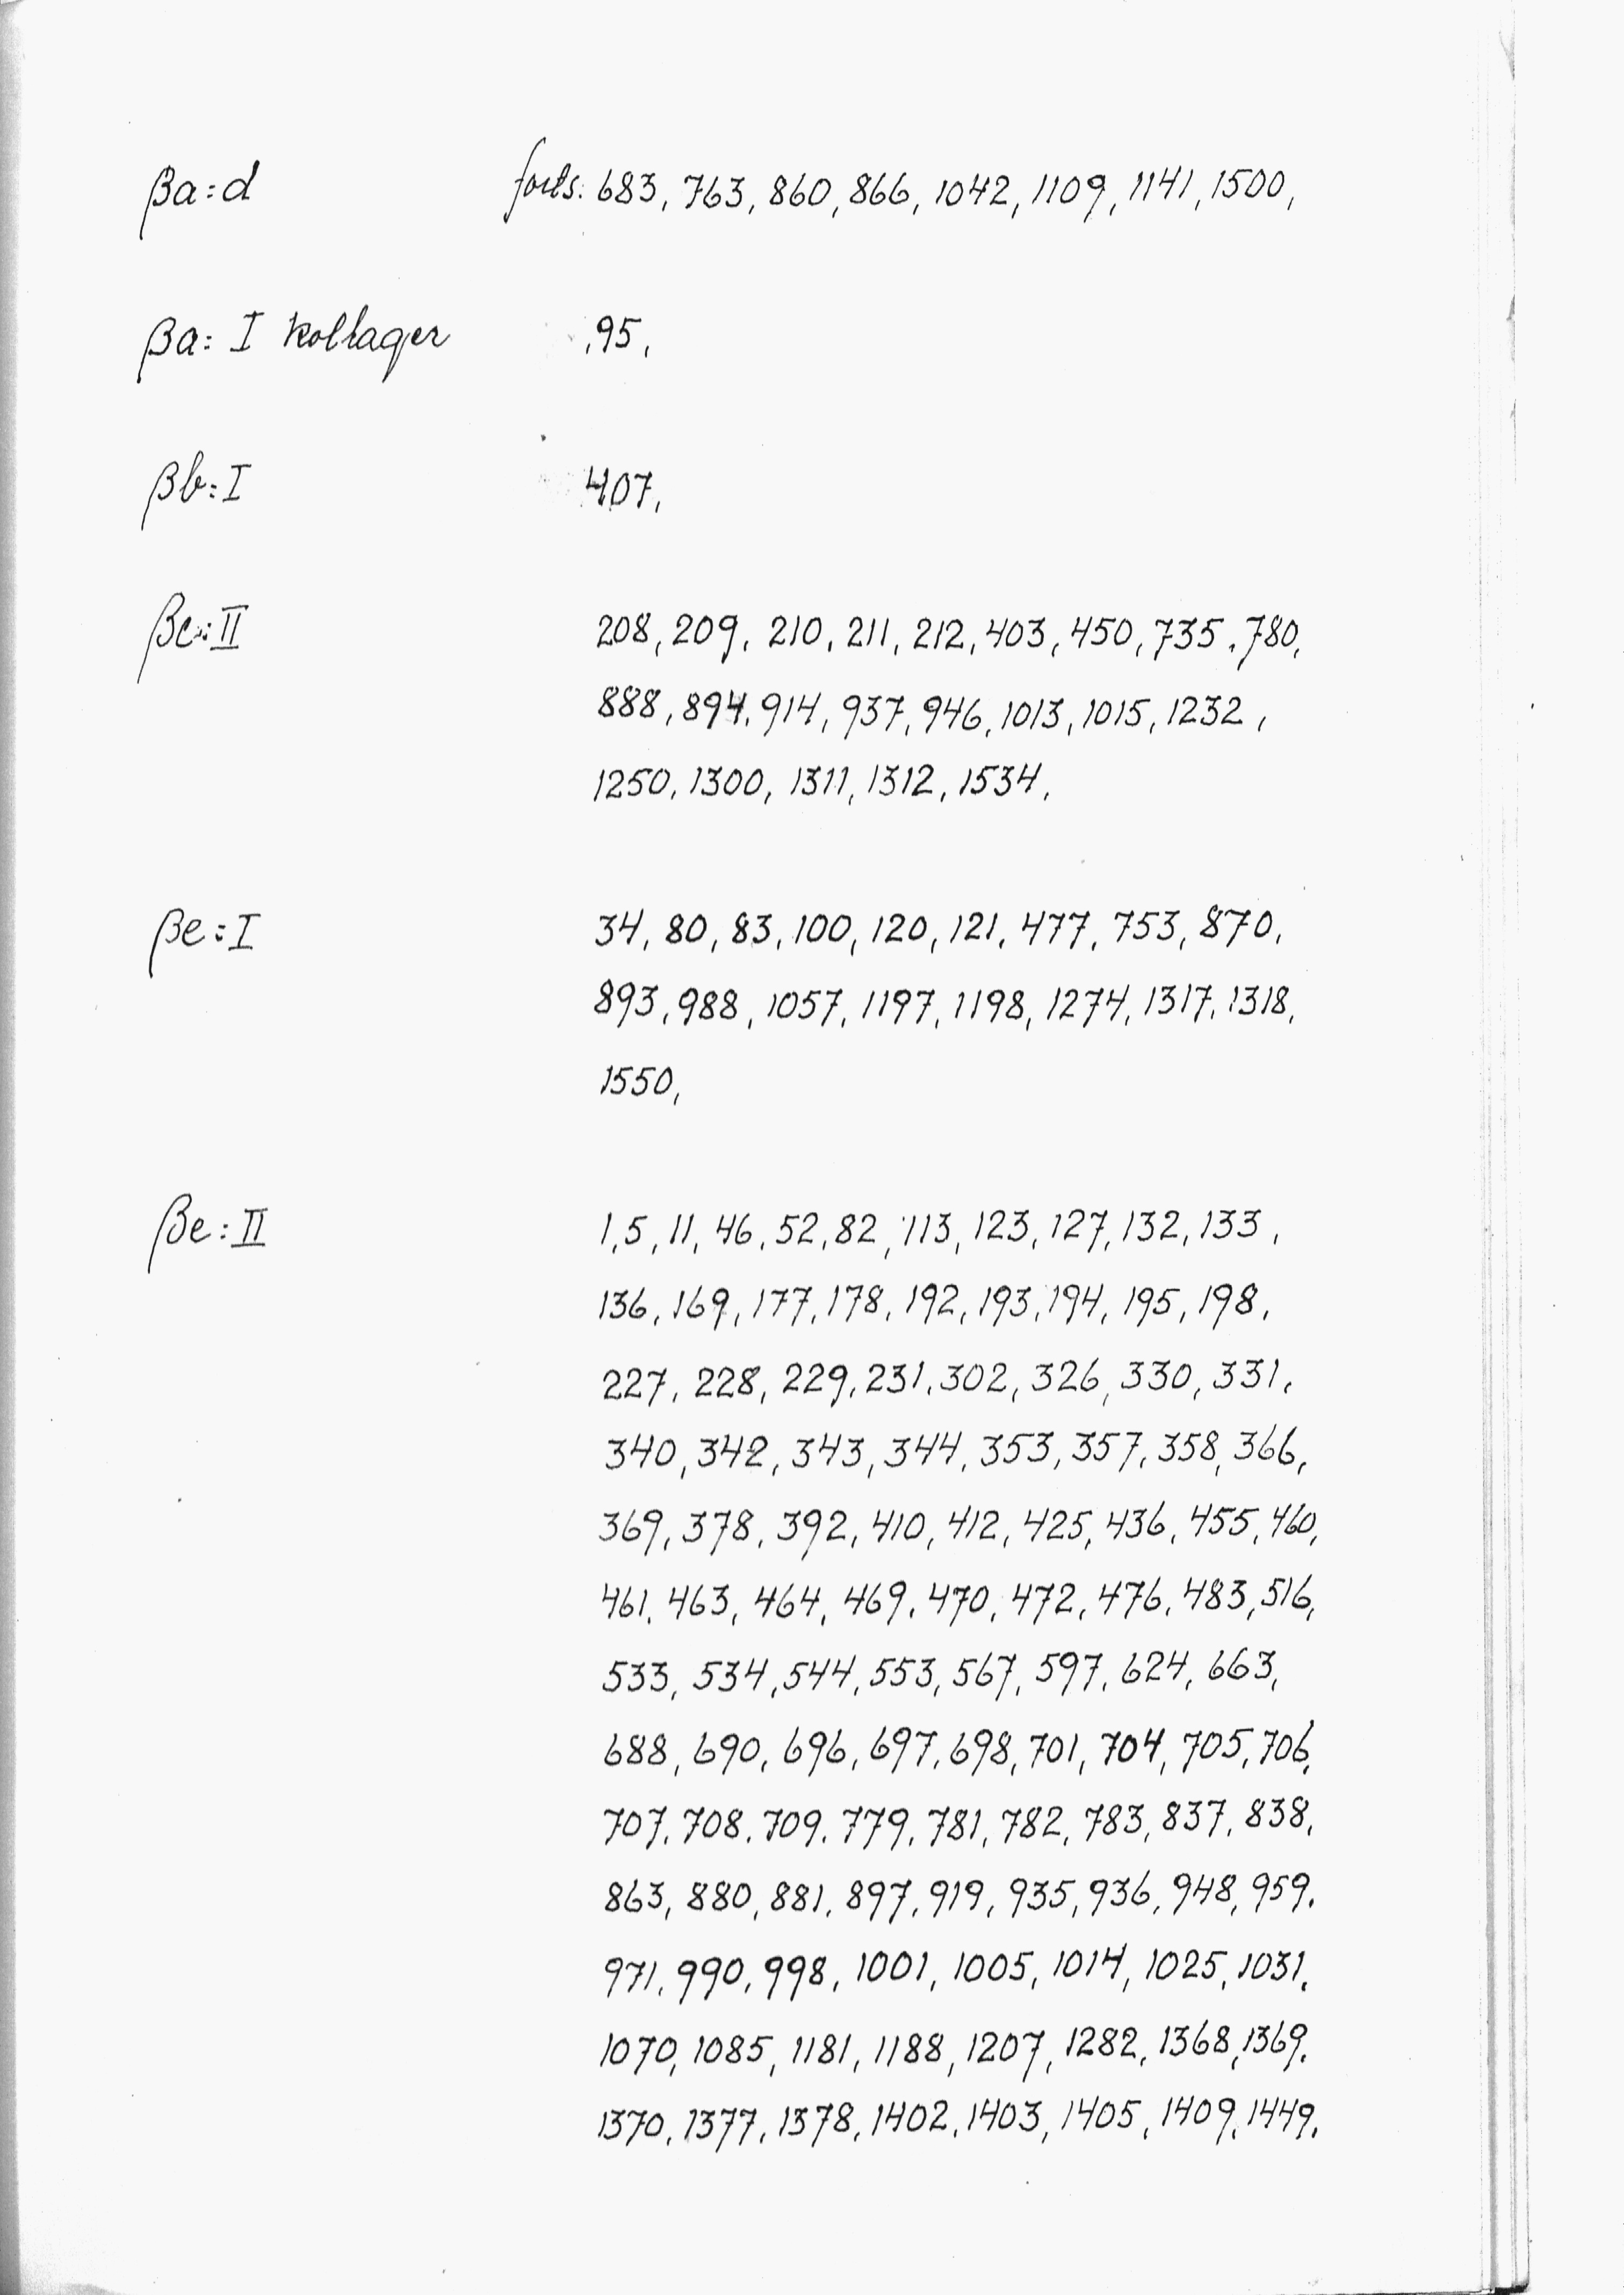 βa:d forts: 683, 763, 860, 866, 1042, 1109, 1141, 1500,
βa: I Kollager ,95,
βb:I 407,
βc:II 208, 209, 210, 211, 212, 403, 450, 735, 780,
888, 894, 914, 937, 946, 1013, 1015, 1232,
1250, 1300, 1311, 1312, 1534,
βe:I 34, 80, 83, 100, 120, 121, 477, 753, 870,
893, 988, 1057, 1197, 1198, 1274, 1317, 1318,
1550,
βe:II 1, 5, 11, 46, 52, 82, 113, 123, 127, 132, 133,
136, 169, 177, 178, 192, 193, 194, 195, 198,
227, 228, 229, 231, 302, 326, 330, 331,
340, 342, 343, 344, 353, 357, 358, 366,
369, 378, 392, 410, 412, 425, 436, 455, 460,
461, 463, 464, 469, 470, 472, 476, 483, 516,
533, 534, 544, 553, 567, 597, 624, 663,
688, 690, 696, 697, 698, 701, 704, 705, 706,
707, 708, 709, 779, 781, 782, 783, 837, 838,
863, 880, 881, 897, 919, 935, 936, 948, 959,
971, 990, 998, 1001, 1005, 1014, 1025, 1031,
1070, 1085, 1181, 1188, 1207, 1282, 1368, 1369,
1370, 1377, 1378, 1402, 1403, 1405, 1409, 1449,